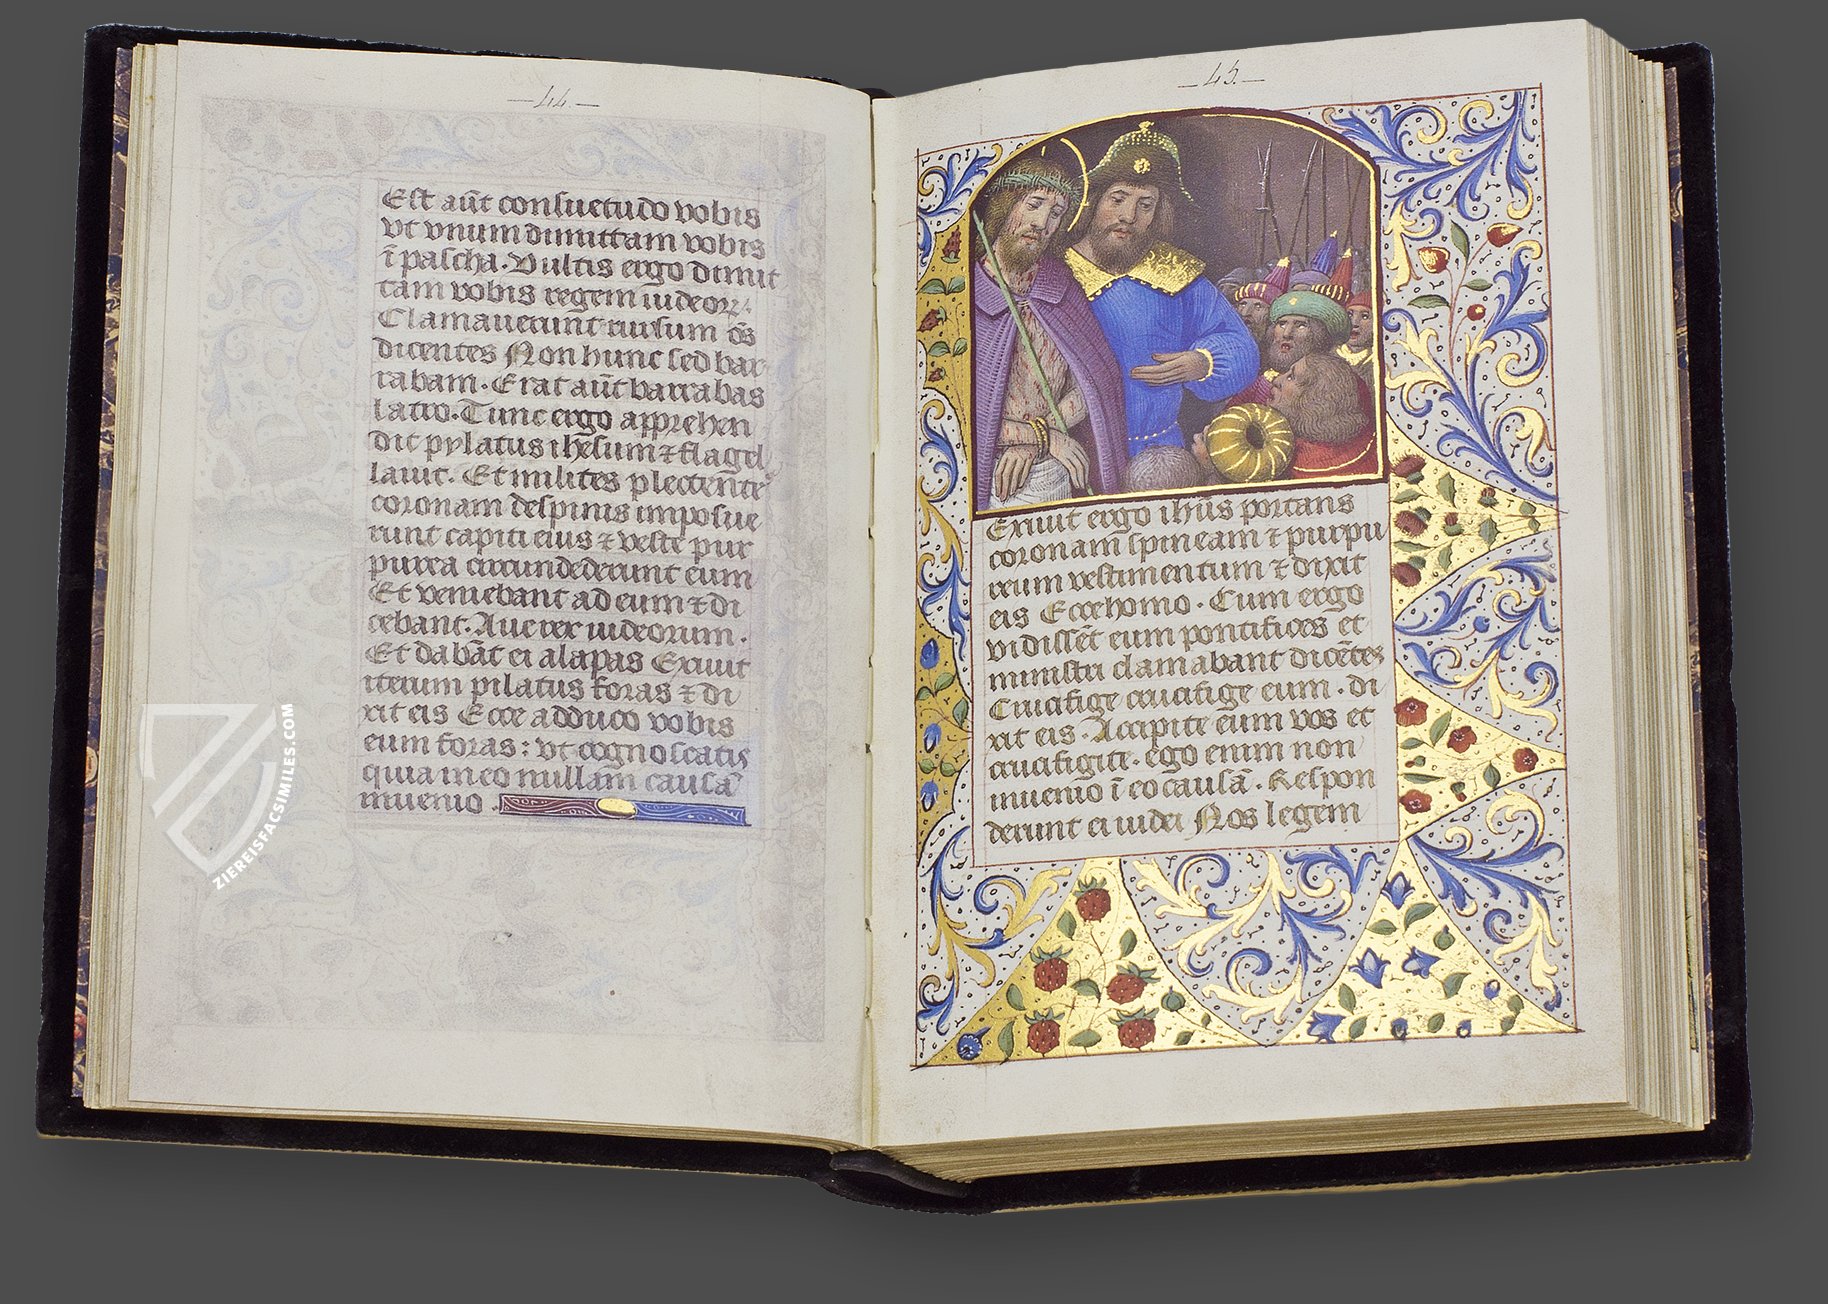 44
Est aūt consuetudo vobis
vt vnum dimittam vobis
ī pascha. Vultis ergo dimit
tam vobis regem iudeoꝝ.
Clamauerunt rursum oēs
dicentes Non hunc sed bar
rabam. Erat aūt barrabas
latro. Tunc ergo apprehen
dit pylatus ihesum ⁊ flagel
lauit. Et milites plectentes
coronam despinis imposue
runt capiti eius ⁊ veste pur
purea circundederunt eum
Et veniebant ad eum ⁊ di
cebant. Aue rex iudeorum.
Et dabāt ei alapas Exiuit
iterum pilatus foras ⁊ di
xit eis Ecce adduco vobis
eum foras: vt cognoscatis
quia in eo nullam causā
inuenio.
45
Exiuit ergo ihūs portans
coronam spineam ⁊ purpu
reum vestimentum ⁊ dixit
eis Eccehomo. Cum ergo
vidissēt eum pontifices et
ministri clamabant dicētes
Crucifige crucifige eum. di
xit eis. Accipite eum vos et
crucifigite. ego enim non
inuenio ī eo causā. Respon
derunt ei iudei Nos legem
ZIEREISFACSIMILES.COM